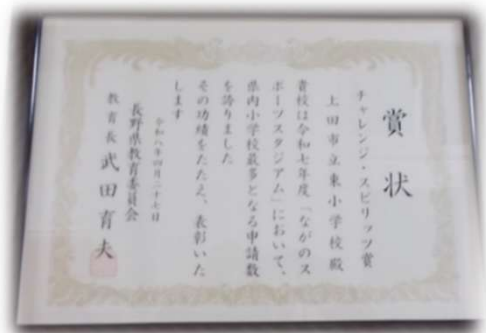 賞状
チャレンジ・スピリッツ賞
上田市立東小学校殿
貴校は令和七年度「ながのス
ポーツスタジアム」において、
県内小学校最多となる申請数
を誇りました
その功績をたたえ、表彰いた
します
令和八年四月二十七日
長野県教育委員会
教育長 武田育夫